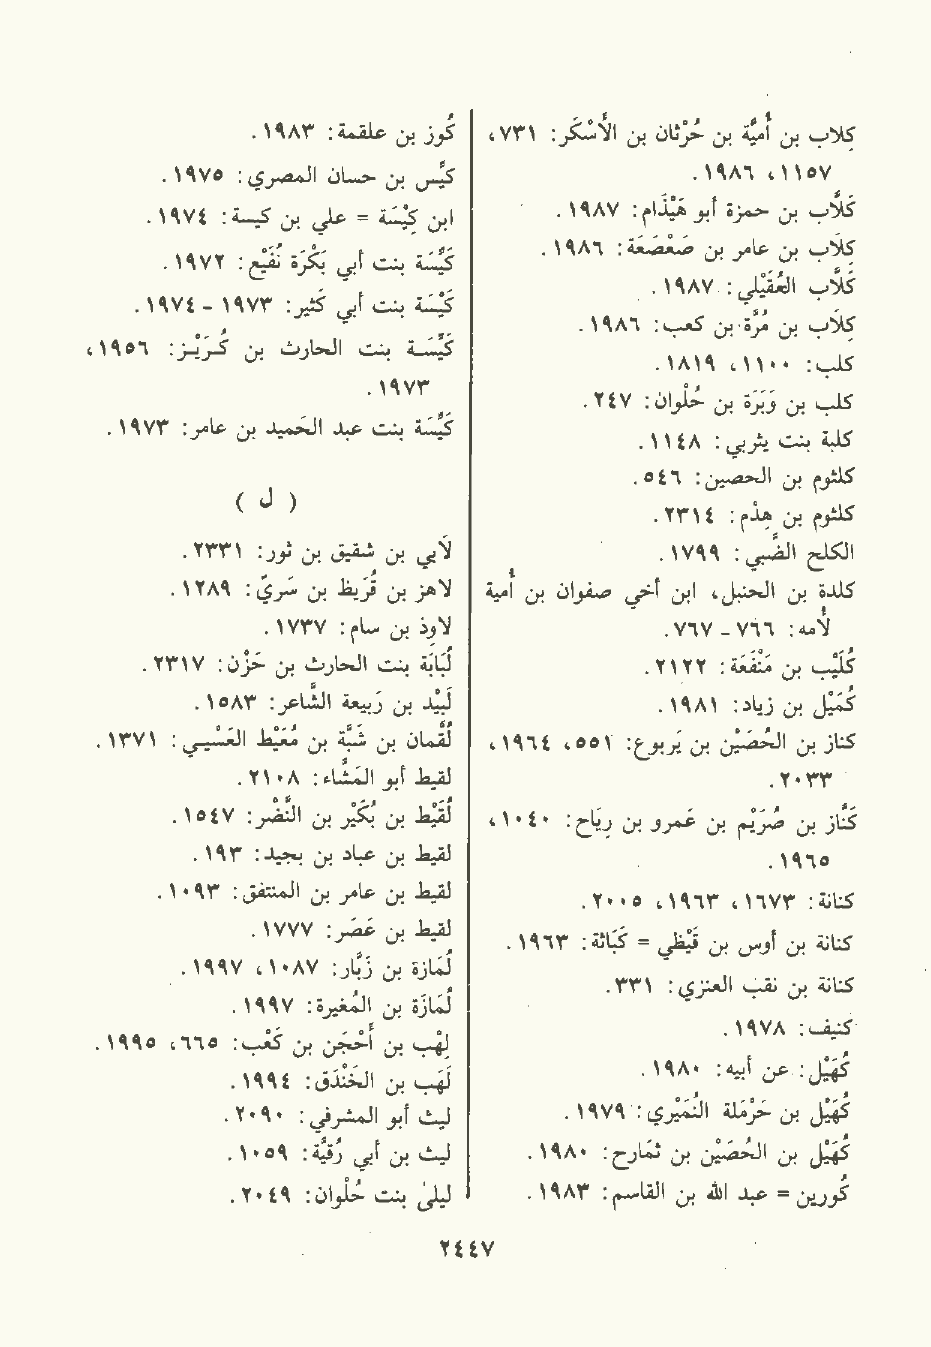 كلاب بن أميَّة بن حُرْثان بن الأَسْكَر: ٧٣١،
١١٥٧، ١٩٨٦.
كَلاَّب بن حمزة أبو هَيْذَام: ١٩٨٧.
كِلاَب بن عامر بن صَعْصَعَة: ١٩٨٦.
كَلاَّب العُقَيْلي: ١٩٨٧.
كِلاَب بن مُرَّة بن كعب: ١٩٨٦.
كلب: ١١٠٠، ١٨١٩.
كلب بن وَبَرَة بن حُلْوان: ٢٤٧.
كلبة بنت يثربي: ١١٤٨.
كلثوم بن الحصين: ٥٤٦.
كلثوم بن هِدْم: ٢٣١٤.
الكلح الضَّبي: ١٧٩٩.
كلدة بن الحنبل، ابن أخي صفوان بن أُمية
لأُمه: ٧٦٦ - ٧٦٧.
كُلَيْب بن مَنْفَعَة: ٢١٢٢.
كُمَيْل بن زياد: ١٩٨١.
كناز بن الحُصَيْن بن يَربوع: ٥٥١، ١٩٦٤،
٢٠٣٣.
كَنَّاز بن صُرَيْم بن عَمرو بن رِيَاح: ١٠٤٠،
١٩٦٥.
كنانة: ١٦٧٣، ١٩٦٣، ٢٠٠٥.
كنانة بن أوس بن قَيْظي = كَبَاثة: ١٩٦٣.
كنانة بن نقب العنزي: ٣٣١.
كنيف: ١٩٧٨.
كُهَيْل: عن أبيه: ١٩٨٠.
كُهَيْل بن حَرْمَلة النُمَيْري: ١٩٧٩.
كُهَيْل بن الحُصَيْن بن ثمَارح: ١٩٨٠.
كُورين = عبد الله بن القاسم: ١٩٨٣.
كُوز بن علقمة: ١٩٨٣.
كيَّس بن حسان المصري: ١٩٧٥.
ابن كِيْسَة = علي بن كيسة: ١٩٧٤.
كَيِّسَة بنت أبي بَكْرَة نُفَيْع: ١٩٧٢.
كَيْسَة بنت أبي كَثير: ١٩٧٣ - ١٩٧٤.
كَيِّسَة بنت الحارث بن كُرَيْز: ١٩٥٦،
١٩٧٣.
كَيِّسَة بنت عبد الحَميد بن عامر: ١٩٧٣.
( ل )
لَأبي بن شقيق بن ثور: ٢٣٣١.
لاهز بن قُرَيظ بن سَريّ: ١٢٨٩.
لاوِذ بن سام: ١٧٣٧.
لُبَابَة بنت الحارث بن حَزْن: ٢٣١٧.
لَبِيْد بن رَبيعة الشَّاعر: ١٥٨٣.
لُقْمان بن شَبَّة بن مُعَيْط العَبْسي: ١٣٧١.
لقيط أبو المَشَّاء: ٢١٠٨.
لُقَيْط بن بُكَيْر بن النَّضْر: ١٥٤٧.
لقيط بن عباد بن بجيد: ١٩٣.
لقيط بن عامر بن المنتفق: ١٠٩٣.
لقيط بن عَصَر: ١٧٧٧.
لُمَازة بن زَبَّار: ١٠٨٧، ١٩٩٧.
لُمَازَة بن المُغيرة: ١٩٩٧.
لِهْب بن أَحْجَن بن كَعْب: ٦٦٥، ١٩٩٥.
لَهَب بن الخَنْدَق: ١٩٩٤.
ليث أبو المشرفي: ٢٠٩٠.
ليث بن أبي رُقيَّة: ١٠٥٩.
ليلىٰ بنت حُلْوان: ٢٠٤٩.
٢٤٤٧